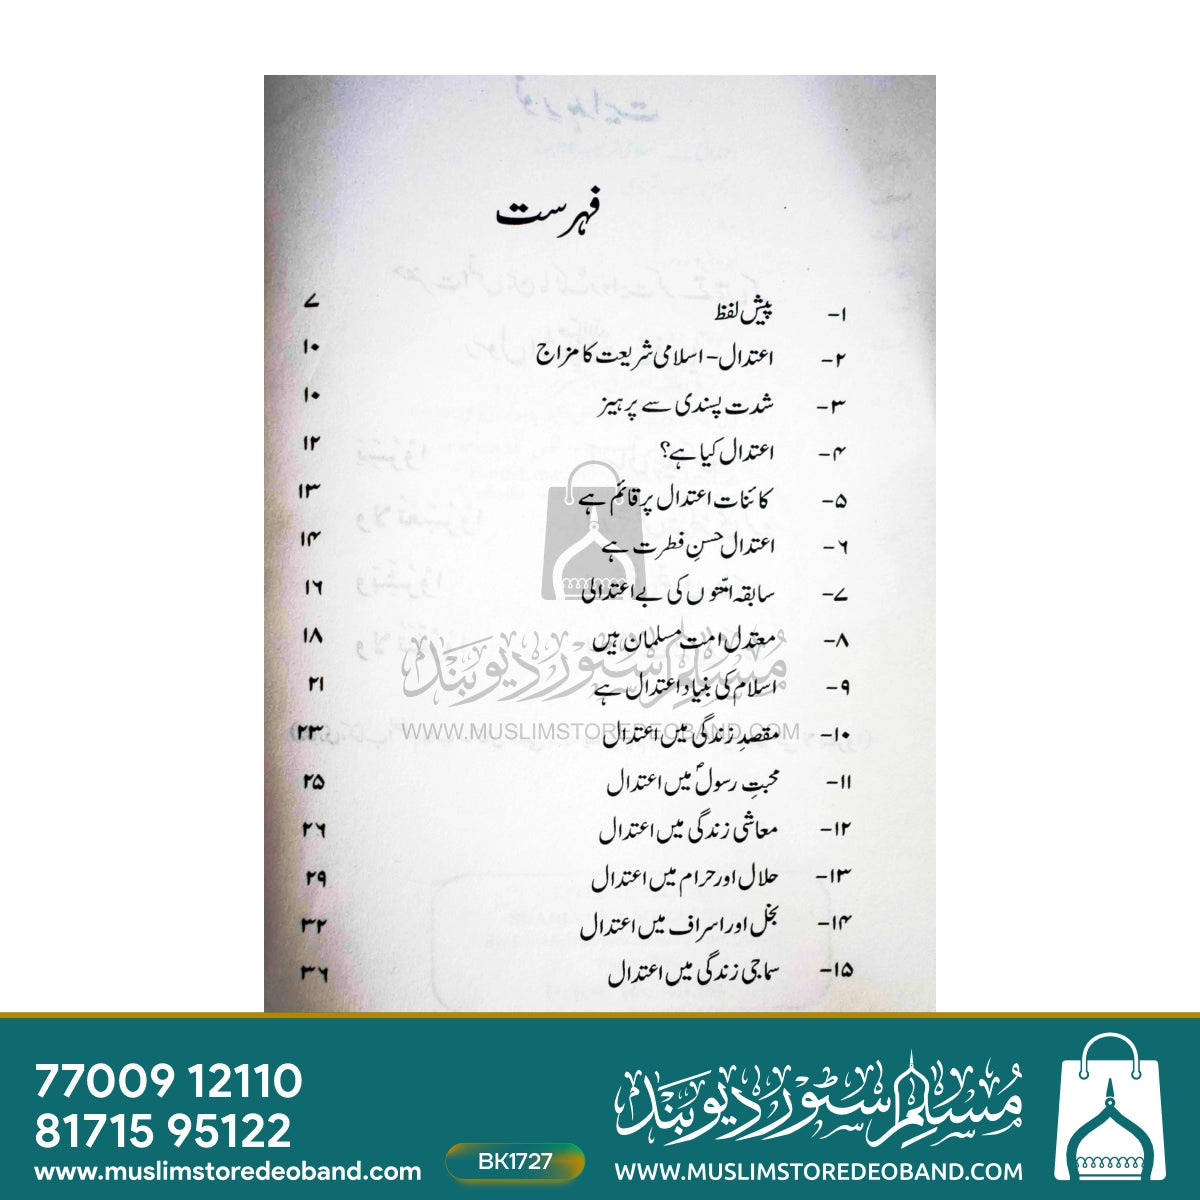 فہرست
۱- پیش لفظ ۷
۲- اعتدال - اسلامی شریعت کا مزاج ۱۰
۳- شدت پسندی سے پرہیز ۱۰
۴- اعتدال کیا ہے؟ ۱۲
۵- کائنات اعتدال پر قائم ہے ۱۳
۶- اعتدال حسنِ فطرت ہے ۱۴
۷- سابقہ امتّوں کی بے اعتدالی ۱۶
۸- معتدل امت مسلمان ہیں ۱۸
مُسلم سٹور دیوبند
۹- اسلام کی بنیاد اعتدال ہے ۲۱
WWW.MUSLIMSTOREDEOBAND.COM
۱۰- مقصدِ زندگی میں اعتدال ۲۳
۱۱- محبتِ رسولؐ میں اعتدال ۲۵
۱۲- معاشی زندگی میں اعتدال ۲۶
۱۳- حلال اور حرام میں اعتدال ۲۹
۱۴- بخل اور اسراف میں اعتدال ۳۲
۱۵- سماجی زندگی میں اعتدال ۳۶
77009 12110
81715 95122
www.muslimstoredeoband.com
BK1727
مُسلم سٹور دیوبند
WWW.MUSLIMSTOREDEOBAND.COM